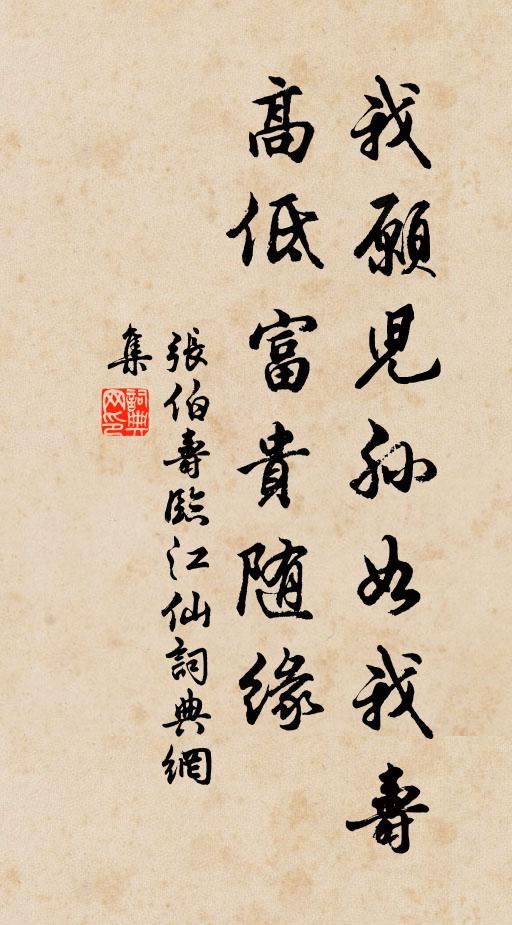 我願兒孫如我壽
高低富貴隨緣
張伯壽臨江仙詞典網
集
詞典
网印